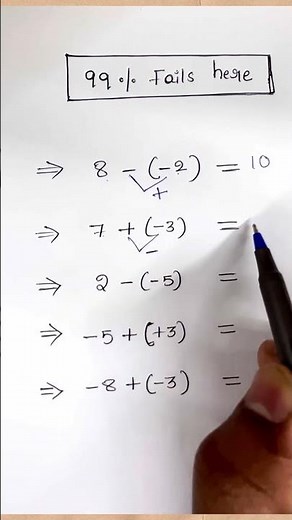 99% Fails here
⇒ 8 - (-2) = 10
+
⇒ 7 + (-3) =
-
⇒ 2 - (-5) =
⇒ -5 + (+3) =
⇒ -8 + (-3) =